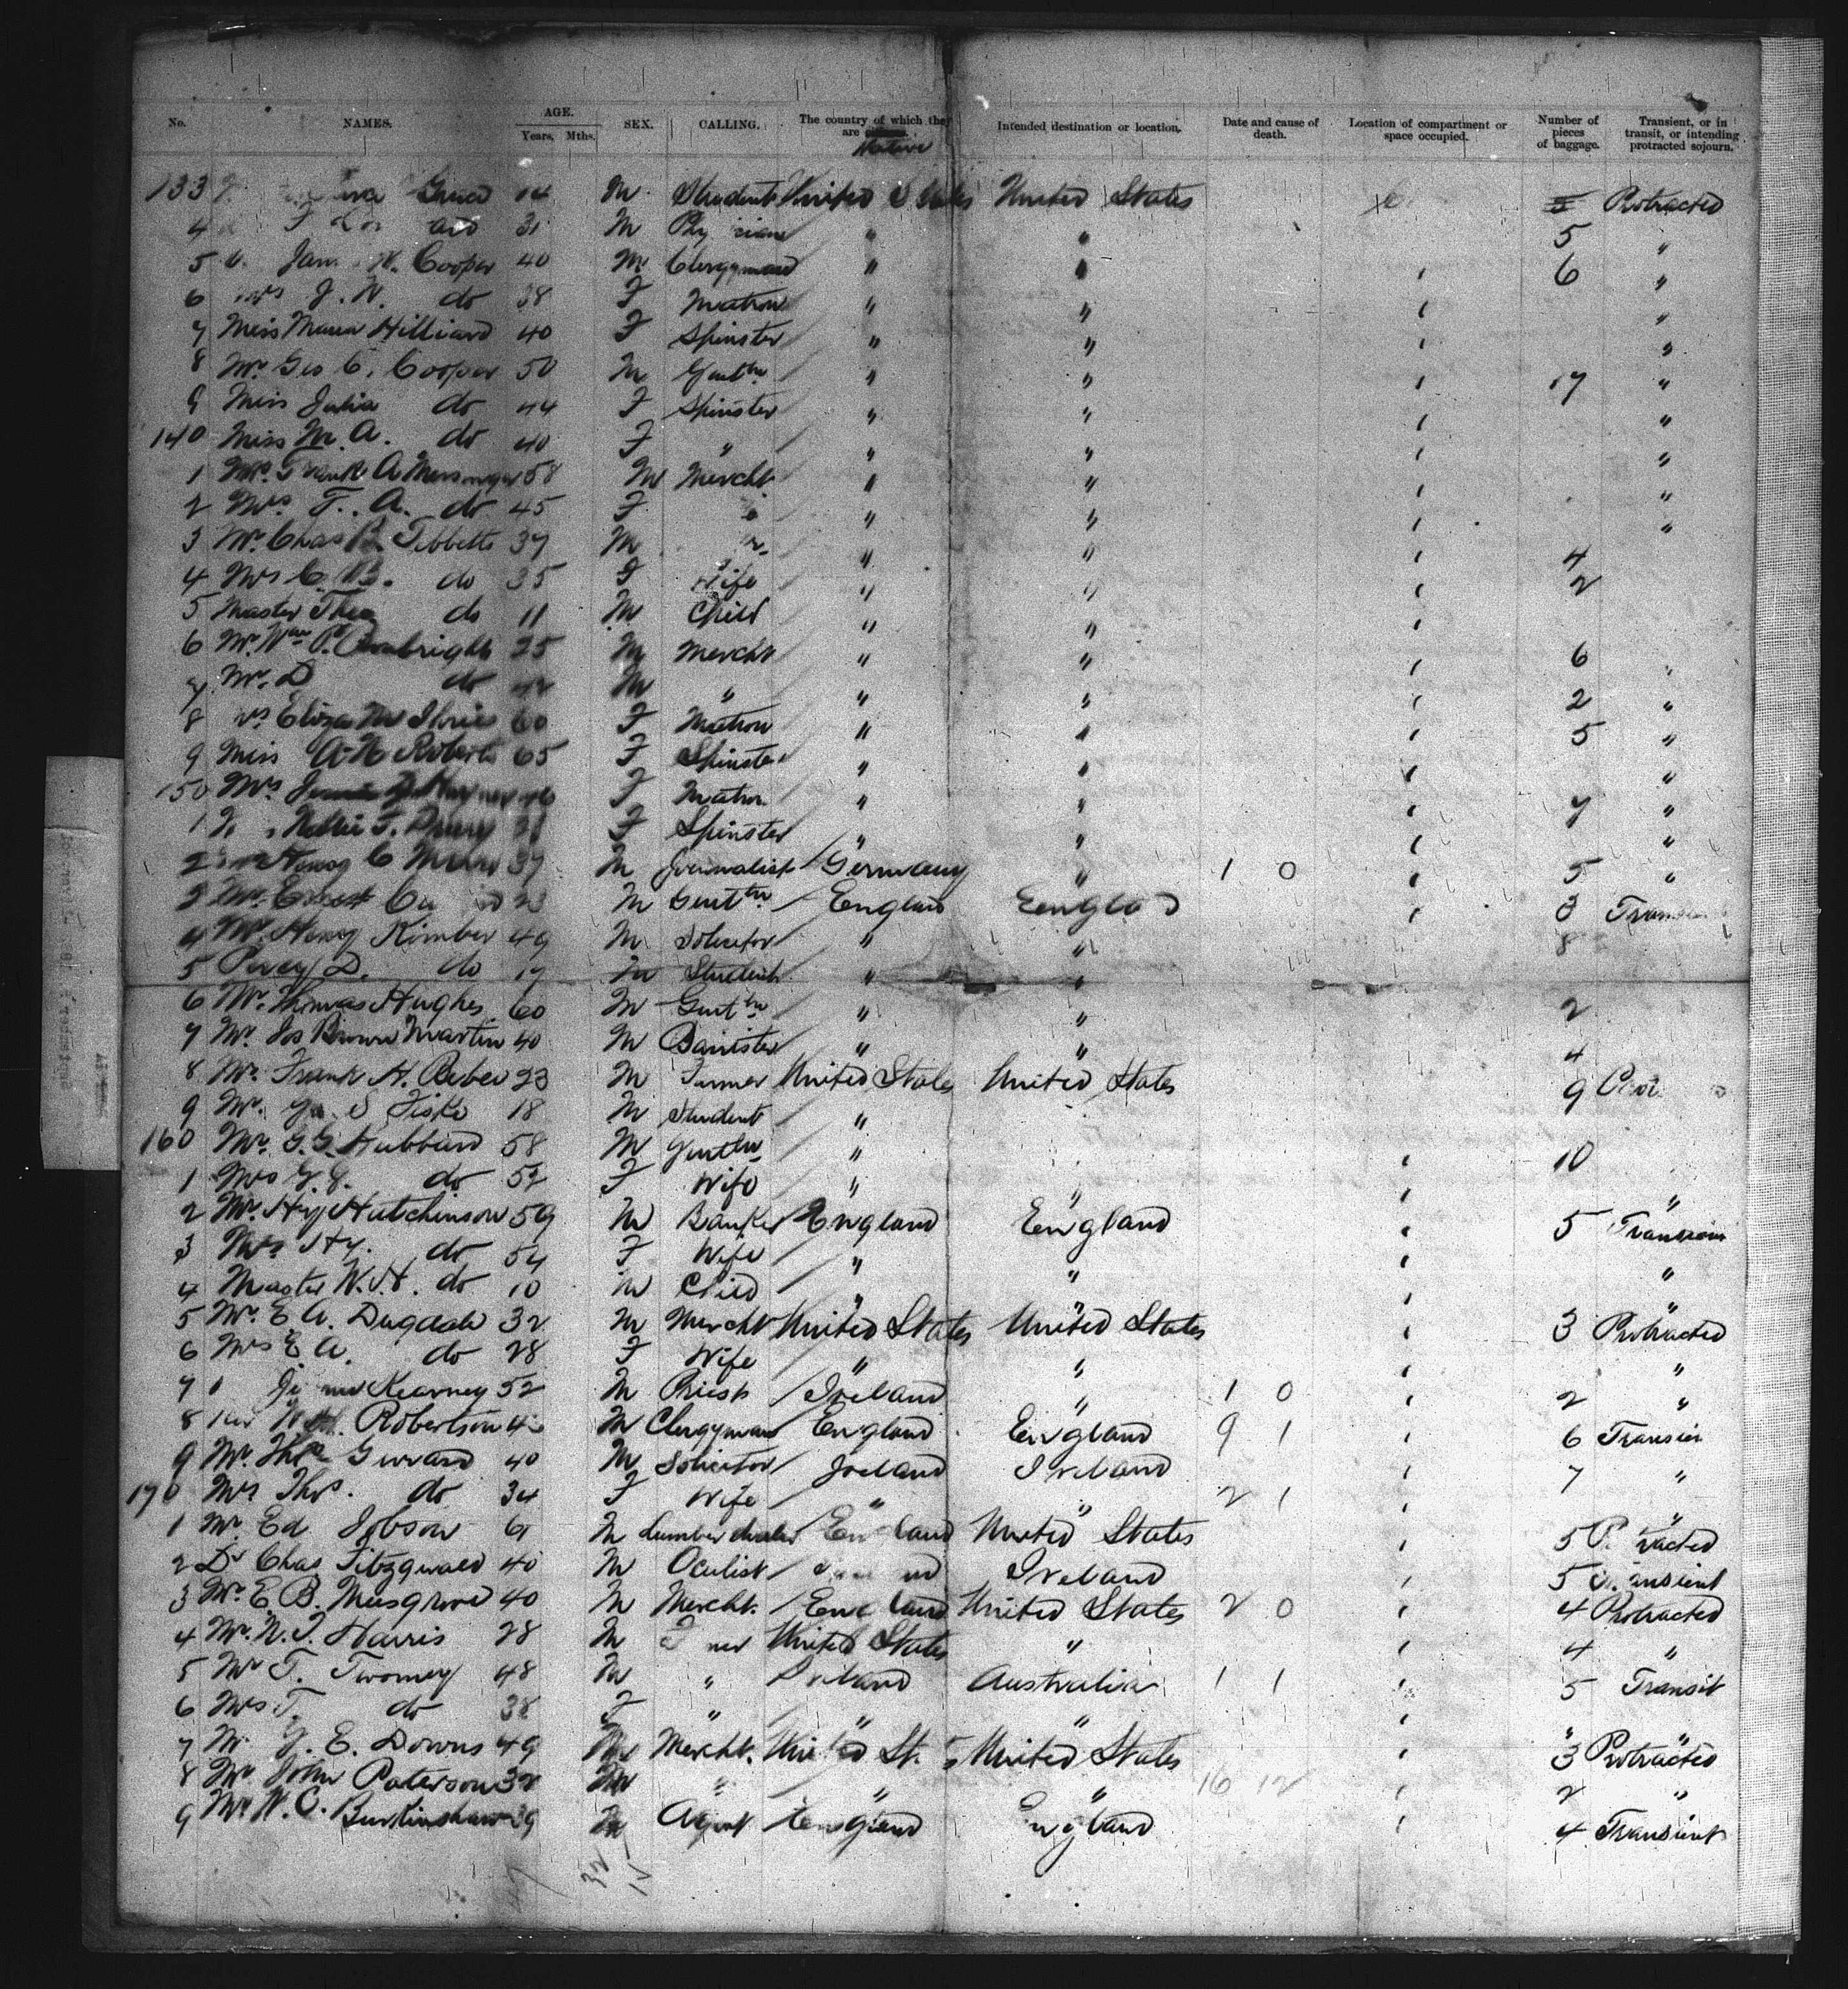 No. NAMES. AGE. Years. Mths. SEX. CALLING. The country of which they are Native Intended destination or location. Date and cause of death. Location of compartment or space occupied. Number of pieces of baggage. Transient, or in transit, or intending protracted sojourn.
133 14 M Student United States United States Protracted
4 31 M " " 5 "
5 W. Cooper 40 M Clergyman " " 6 "
6 Mrs J. W. do 38 F Matron " " "
7 Miss Hilliard 40 F Spinster " " "
8 Mr. Geo C. Cooper 50 M Gentln " " 17 "
9 Miss Julia do 44 F Spinster " " "
140 Miss M. A. do 40 F " " " "
1 Frank A 58 M Mercht " " "
2 Mrs F. A. do 45 F " " "
3 Mr. Chas B. Tibbetts 37 M " " 4
4 Mrs C. B. do 35 F Wife " " 2
5 Master Theo do 11 M Child " "
6 Mr. Wm P. 25 M Mercht " " 6 "
7 Mr. D do 42 M " " " 2 "
8 Eliza M 60 F Matron " " 5 "
9 Miss A. H. Roberts 65 F Spinster " " "
150 Mrs F Matron " " 7 "
1 Nellie F. Drury F Spinster " " "
2 C 37 M Journalist Germany " 1 0 5 "
3 Mr. Ernest 23 M Gentln England England 3 Transient
4 Mr. Henry Kimber 49 M Solicitor " " 8
5 Percy D. do 17 M Student " "
6 Mr. Thomas Hughes 60 M Gentln " " 2
7 Mr. Jos Brown Martin 40 M Barrister " " 4
8 Mr. Frank H. Beber 23 M Farmer United States United States 9
9 Mr. Fiske 18 M Student "
160 Mr. G. G. Hubbard 58 M Gentln " 10
1 Mrs G. G. do 52 F Wife " " "
2 Mr. Hy Hutchinson 59 M Banker England England 5 Transient
3 Mrs Hy. do 54 F Wife " " "
4 Master W. H. do 10 M Child " " "
5 Mr. E A. Dugdale 32 M Mercht United States United States 3 Protracted
6 Mrs E A. do 28 F Wife " " "
7 Kearney 52 M Priest Ireland " 1 0 2 "
8 Rev Robertson M Clergyman England England 9 1 6 Transient
9 Mr. Thos Gerrard 40 M Solicitor Ireland Ireland 7 "
170 Mrs Thos. do 34 F Wife " " 2 1 "
1 Mr. Ed Jobson 61 M Lumber dealer England United States 5 Protracted
2 Dr Chas Fitzgerald 40 M Oculist Ireland 5 Transient
3 Mr. E B. Musgrove 40 M Mercht. England United States 2 0 4 Protracted
4 Mr. N. T. Harris 28 M United States " 4 "
5 Mr T. Twomey 48 M " Ireland Australia 1 1 5 Transit
6 Mrs T. do 38 F " " " " "
7 Mr J. E. Downs 49 M Mercht. United States United States 3 Protracted
8 Mr John Paterson 32 M " " " 16 12 2 "
9 Mr W. C. Burkinshaw 39 M Agent England England 4 Transient